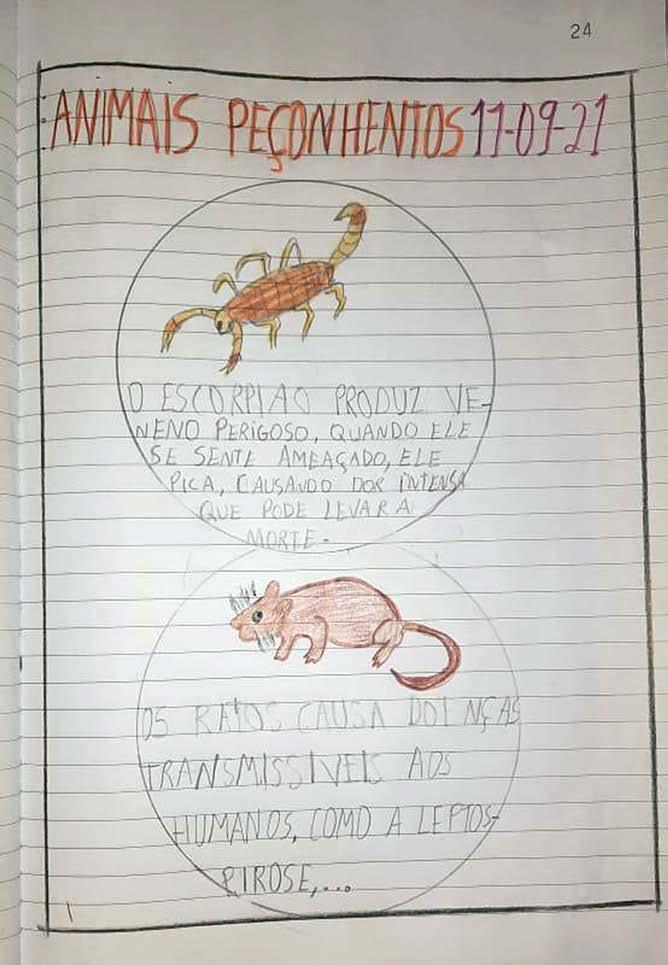 24
ANIMAIS PEÇONHENTOS 11-09-21
O ESCORPIAO PRODUZ VE-
NENO PERIGOSO, QUANDO ELE
SE SENTE AMEAÇADO, ELE
PICA, CAUSANDO DOR INTENSA
QUE PODE LEVAR A
MORTE-
OS RATOS CAUSA DOENÇAS
TRANSMISSIVEIS AOS
HUMANOS, COMO A LEPTOS-
PIROSE,...